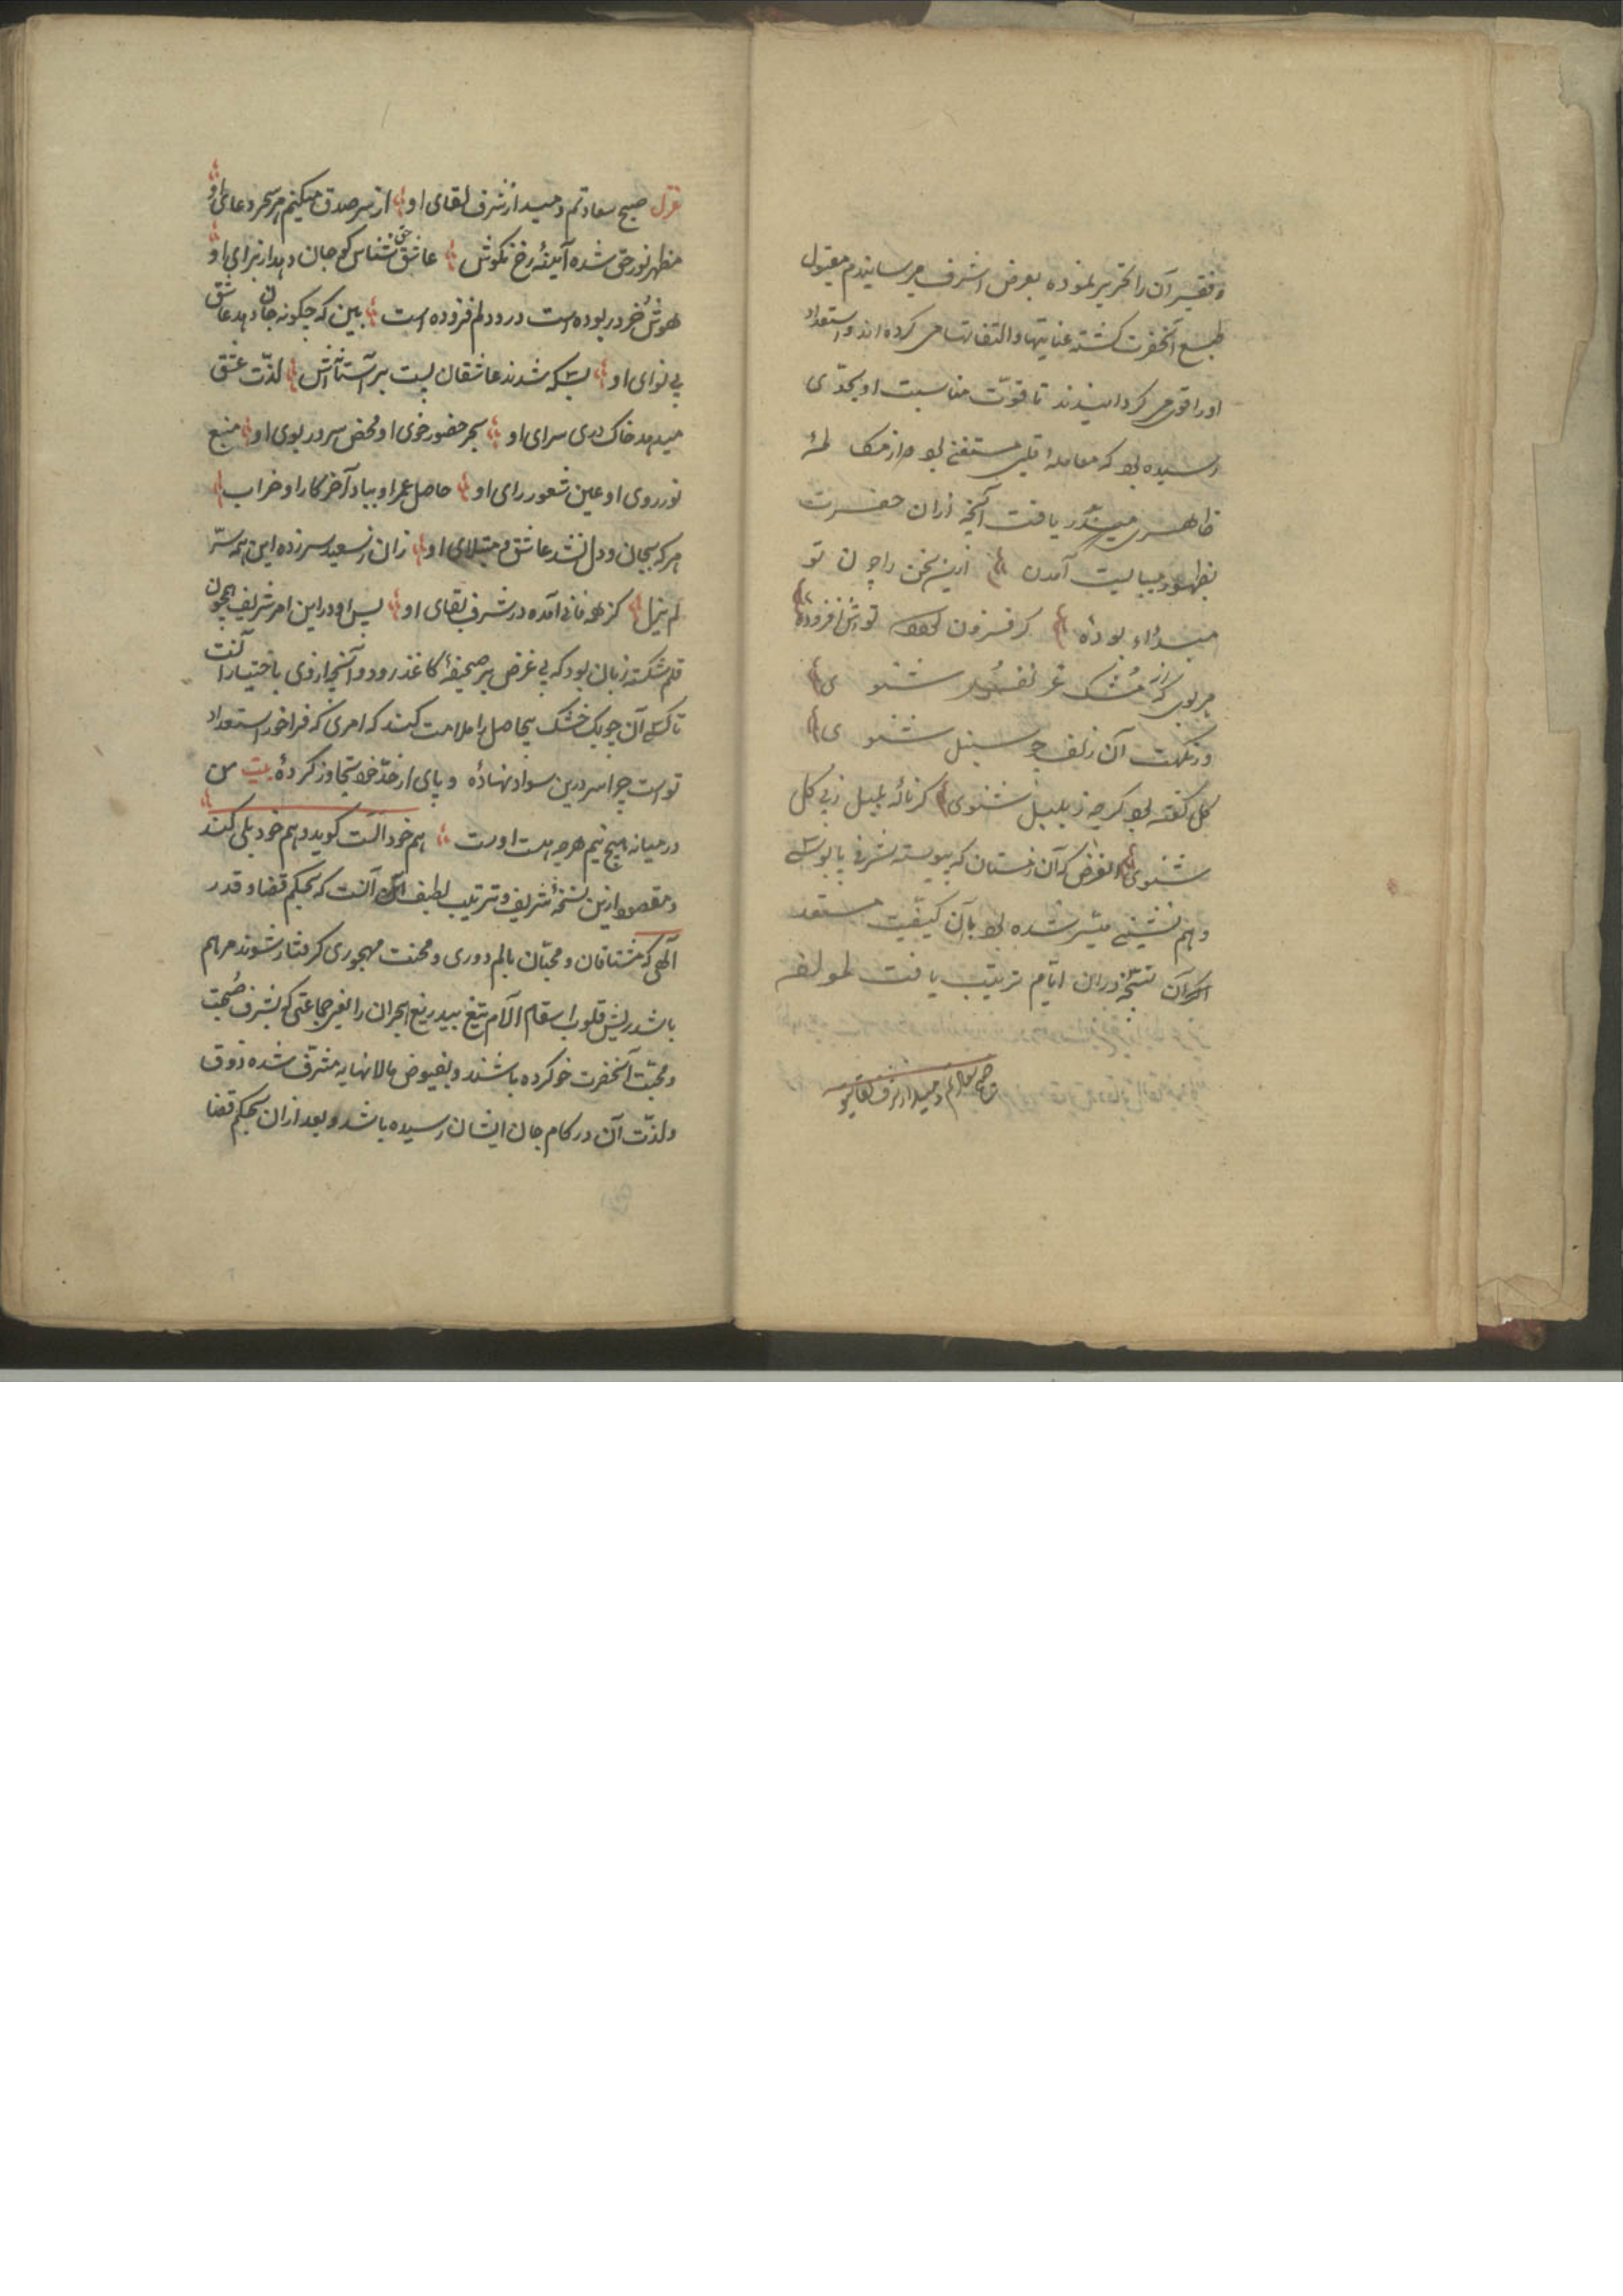 و فقیر آن را تحریر نموده بعرض اشرف میرسانیدم مقبول
طبع آنحضرت کشته عنایتها و التفاتها می کرده اند و استعداد
او را قوی می کردانیدند تا قوّت مناسبت او بحدّی
رسیده بود که معامله قلبی مستغنی بود و از
ظاهری میتد دریافت آنچه ازان حضرت
بظهور میبایست آمدن ازین سخن را چون تو
مبداء بودۀ کر فزون تواش افزودۀ
هر بوی که از مشک و قرنفل شنوی
از نکهت آن زلف چو سنبل شنوی
کل کفته بود کرچه ز بلبل شنوی کر نالۀ بلبل ز پی کل
شنوی الغرض که آن زمستان که پیوسته شرف پابوسی
و هم نشینی میسّر شده بود بآن کیفیت مستعد
اکثر آن نسخه دران ایّام ترتیب یافت لمولفه
صبح سعادتم دمید از شرف لقای او
غزل صبح سعادتم دمید از شرف لقای او از سر صدق میکنم هر سحر دعای او
مظهر نور حق شده آیینۀ رخ نکوش عاشق حق شناس کو جان دهد از برای او
هوش خرد ربوده است درد دلم فزوده است بین که چکونه جان دهد عاشق
بی نوای او بسکه شدند عاشقان پست بر آستانش لذّت عشق
میدهد خاک در سرای او بحر حضور خوی او محض سرور بوی او منبع
نور روی او عین شعور رای او حاصل عمر او بباد آخر کار او خراب
هر که بجان و دل نشد عاشق و مبتلای او زان ز سعید سر زده این همه سرّ
لم یزل کز خود فانی آمده در شرف بقای او پس او در این امر شریف همچون
قلم شکسته زبان بود که بی غرض بر صحیفۀ کاغذ رود و آنچه از وی باختیار آنست
تا کسی آن چوبک خشک بیحاصل را ملامت کند که امری که فراخور استعداد
تو است چرا سر درین سواد نهادۀ و پای از حدّ خود تجاوز کردۀ بیت من
در میانه هیچ نیم هرچه هست اوست هم خود الست کوید و هم خود بلی کند
و مقصود ازین نسخۀ شریف و ترتیب لطیف آنست که بحکم قضا و قدر
آلهی که مشتاقان و محبّان بالم دوری و محنت مهجوری کرفتار شوند مرهم
باشد ریش قلوب اسقام آلام تیغ بیدریغ هجران را یعنی جماعتی که بشرف صحبت
و محبّت آنحضرت خو کرده باشند و بفیوض مالانهایه مشرّف شده ذوق
و لذّت آن در کام جان ایشان رسیده باشد و بعد ازان بحکم قضا